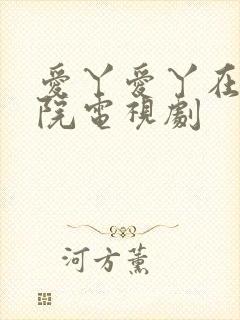 愛丫愛丫在
院電視劇
河方薰